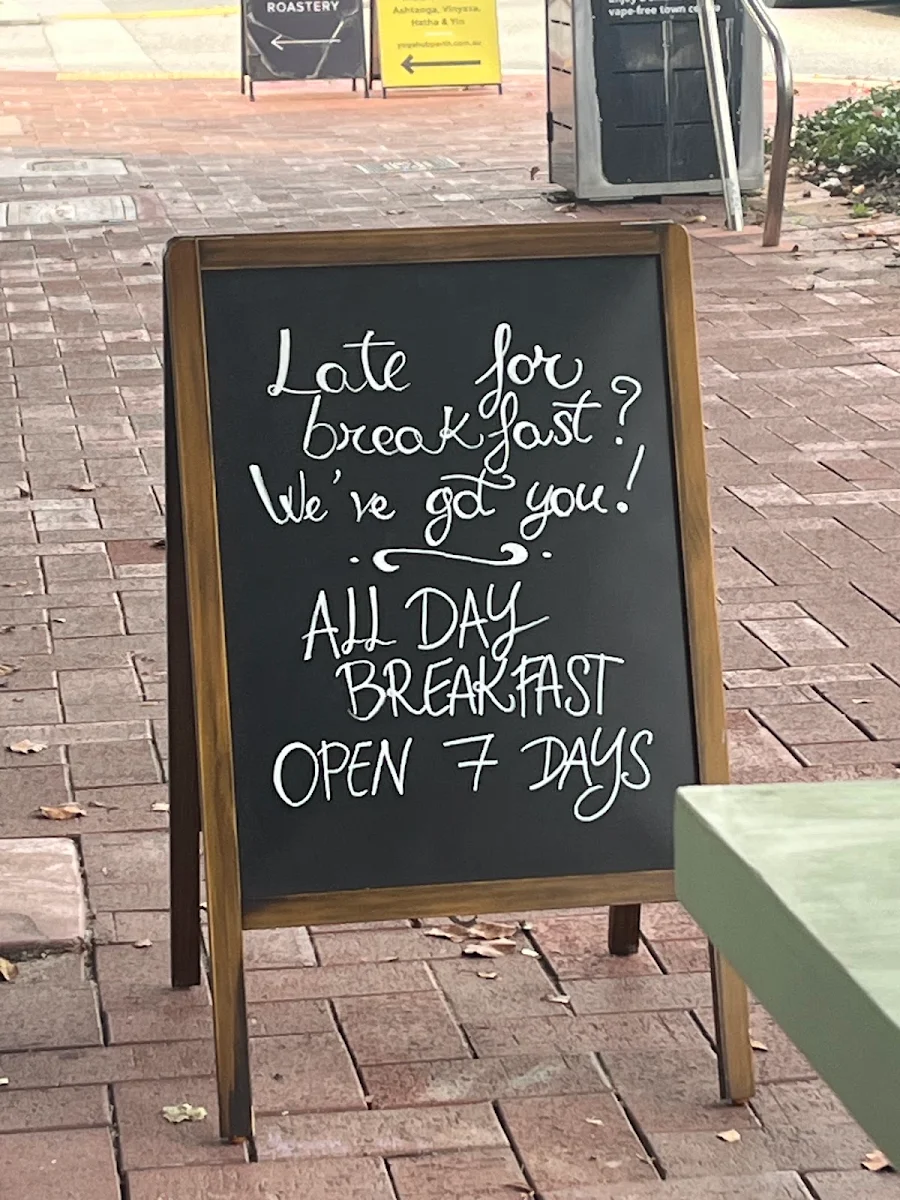 ROASTERY
Ashtanga, Vinyasa,
Hatha & Yin
yogahubperth.com.au
vape-free town
Late for
breakfast?
We've got you!
ALL DAY
BREAKFAST
OPEN 7 DAYS